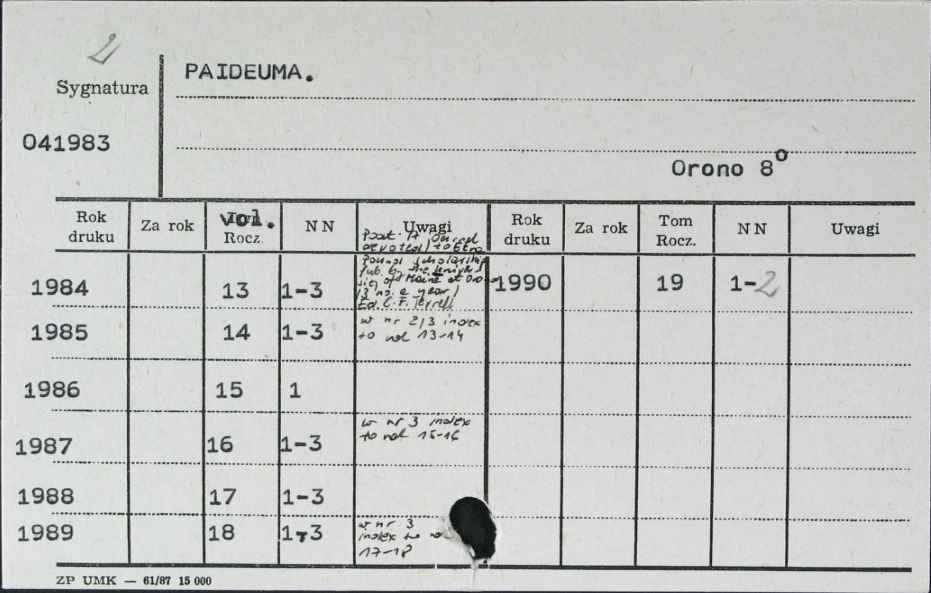 2
Sygnatura
PAIDEUMA.
041983
Orono 8°
Rok druku Za rok vol. Rocz. NN Uwagi Rok druku Za rok Tom Rocz. NN Uwagi
devoted to Ezra
Pound scholarship
pub. by the
of Maine at Orono
(3 no. a year)
Ed. C. F. Terrell
1984 13 1-3 1990 19 1-2
1985 14 1-3 w nr 2/3 index
to vol 13-14
1986 15 1
1987 16 1-3 w nr 3 index
to vol 15-16
1988 17 1-3
1989 18 1-3 w nr 3
index to
17-18
ZP UMK — 61/87 15 000